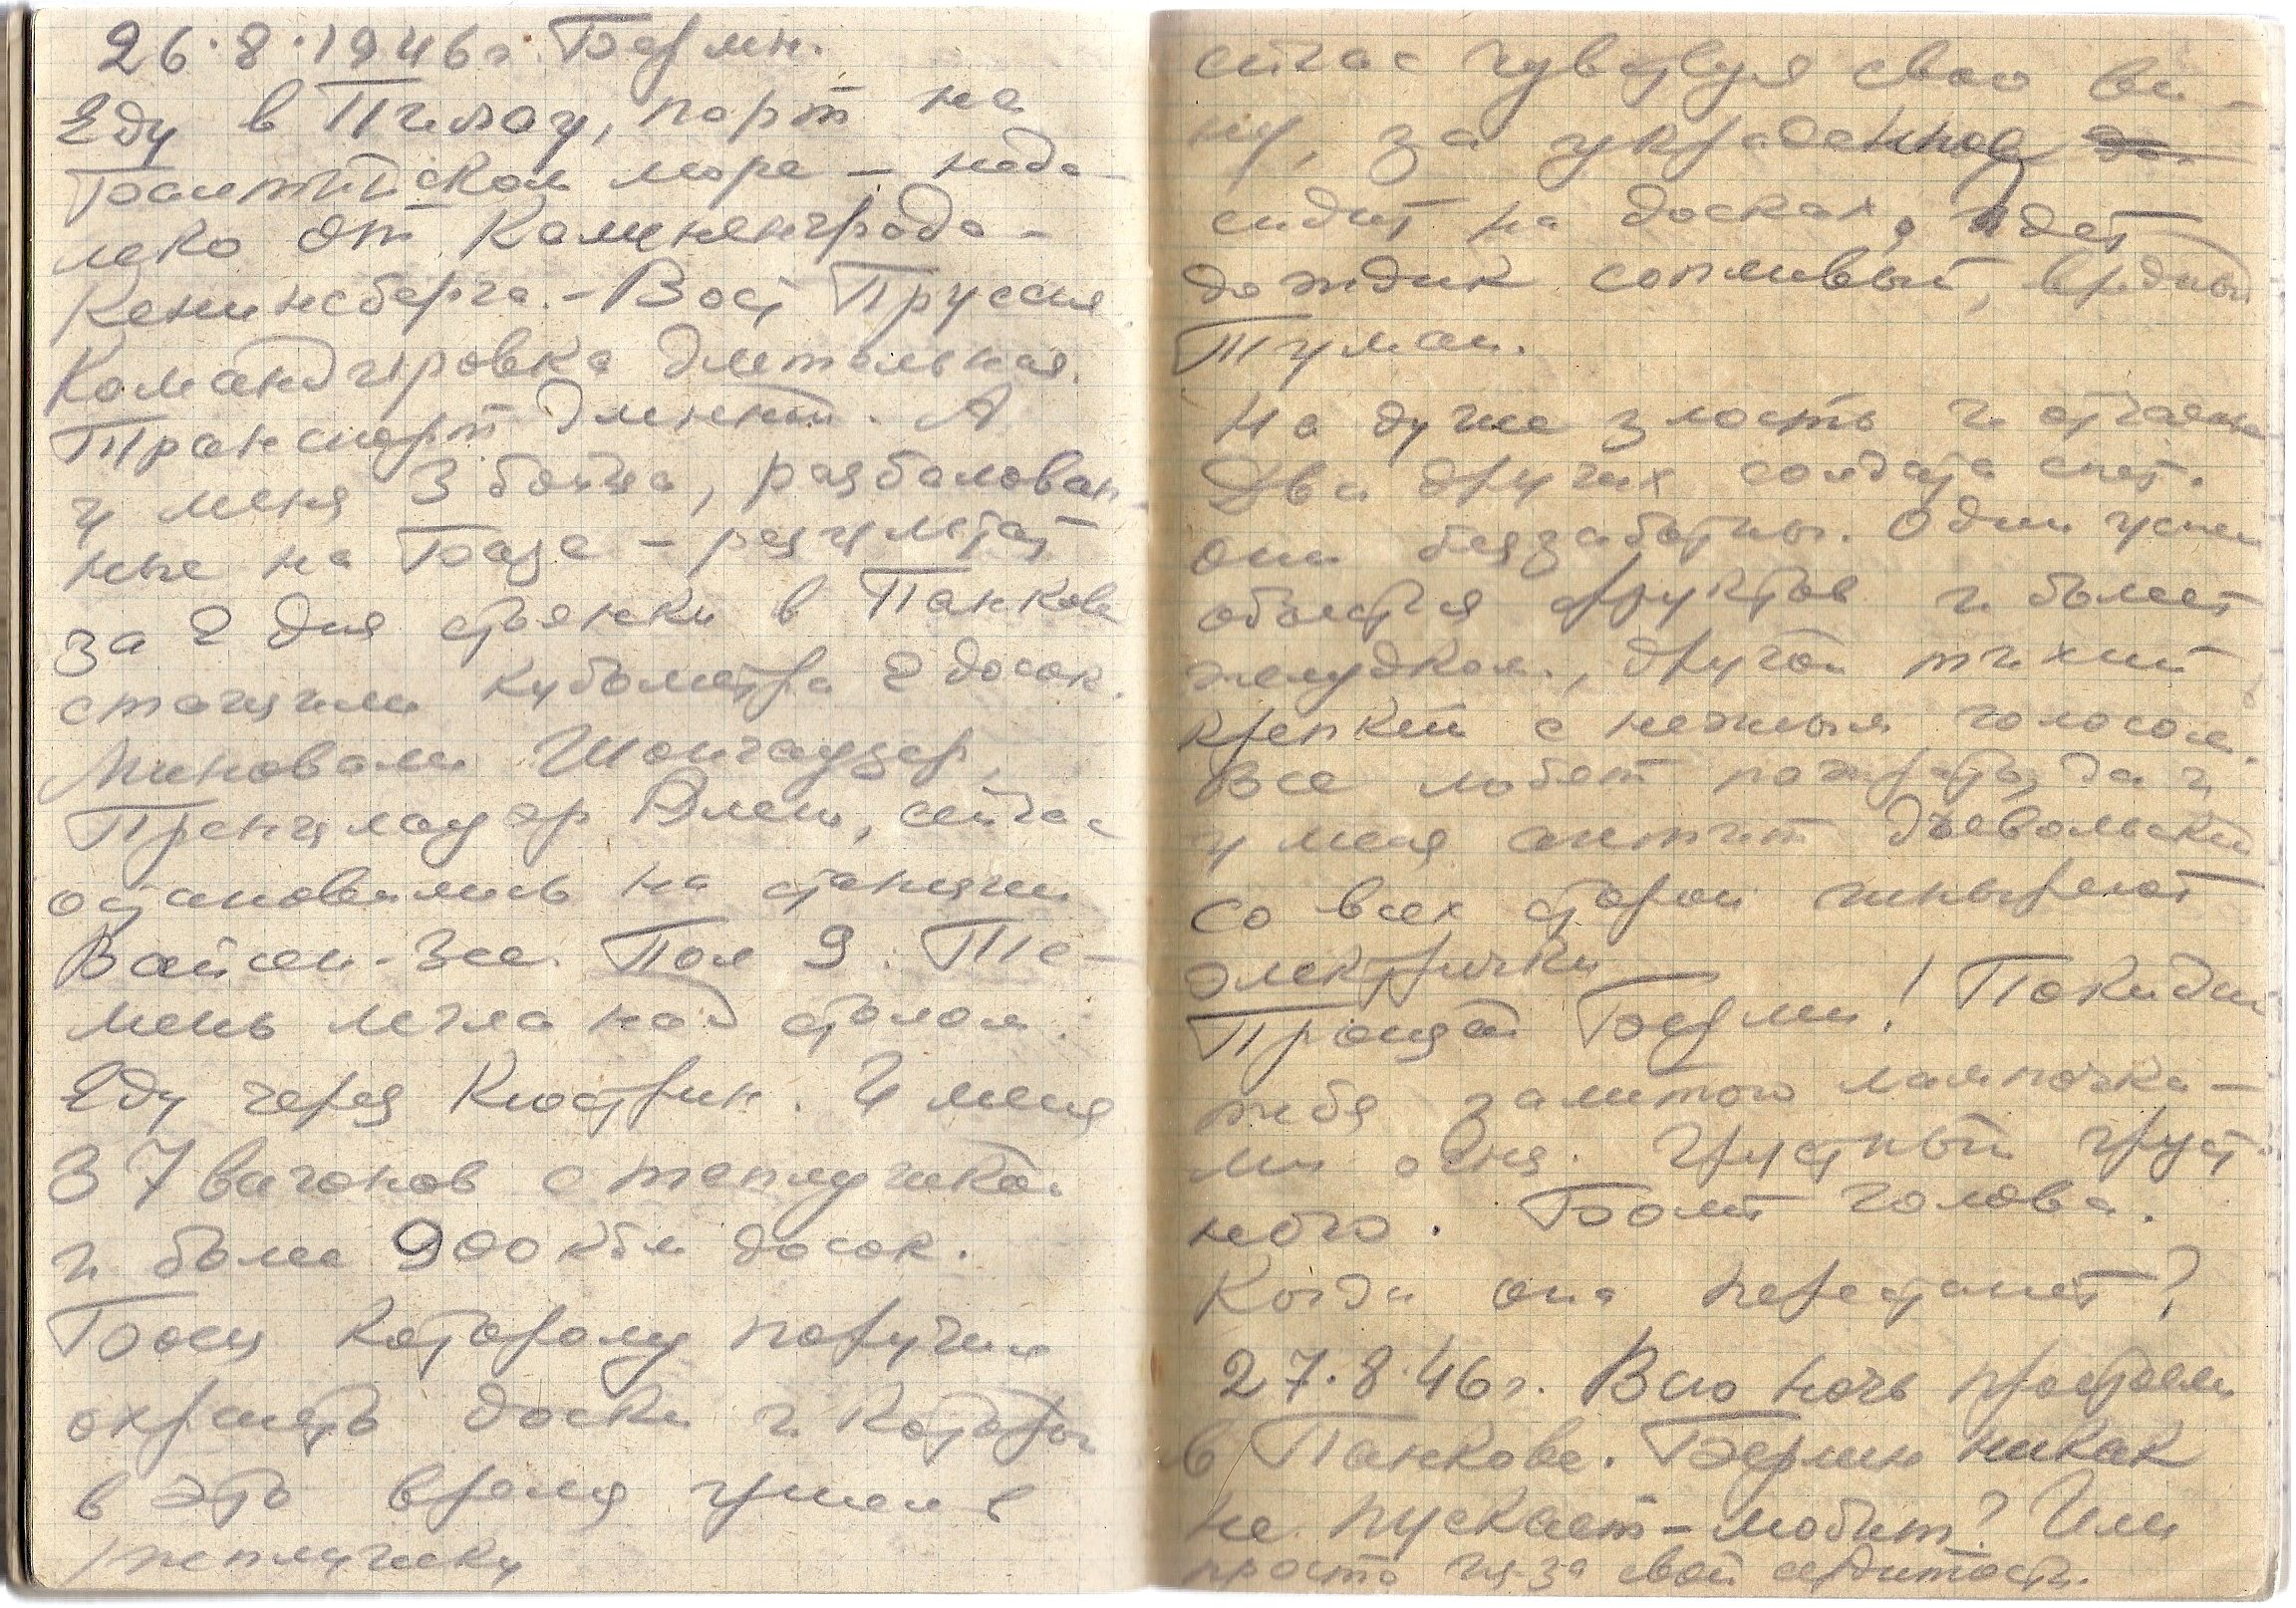 26.8.1946 г. Берлин.
Еду в Пиллау, порт на
Балтийском море – неда-
леко от Калининграда –
Кенигсберга. – Вост Пруссия.
Командировка длительная.
Транспорт длинный. А
у меня 3 бойца, разбалован-
ные на Базе – результат
за 2 дня стоянки в Панкове
стащили кубометра 2 досок.
Миновали Шонгаузер,
Пренцлауэр Алеи, сейчас
остановились на станции
Вайсен-Зее. Пол 9. Те-
мень легла над столом.
Еду через Кюстрин. У меня
37 вагонов с теплушкой
и более 900 кбм досок.
Боец которому поручил
охранять доски и который
в это время ушел в
теплушку
сейчас чувствуя свою ви-
ну, за украденное
сидит на досках, идет
дождик сопливый, вредный
Туман.
На душе злость и отчаянье
Два других солдата спят.
они беззаботны. Один успел
объестся фруктов и болеет
желудком, другой тихий
крепкий с нежным голосом.
Все любят пожрать, да и
у меня аппетит дьявольский
со всех сторон шныряют
электрички
Прощай Берлин! Покидаю
тебя залитого лампочка-
ми огня. Грустный груст-
ного. Болит голова.
Когда она перестанет?
27.8.46 г. Всю ночь простояли
в Панкове. Берлин никак
не пускает – любит? Или
просто из-за своей сердитости.